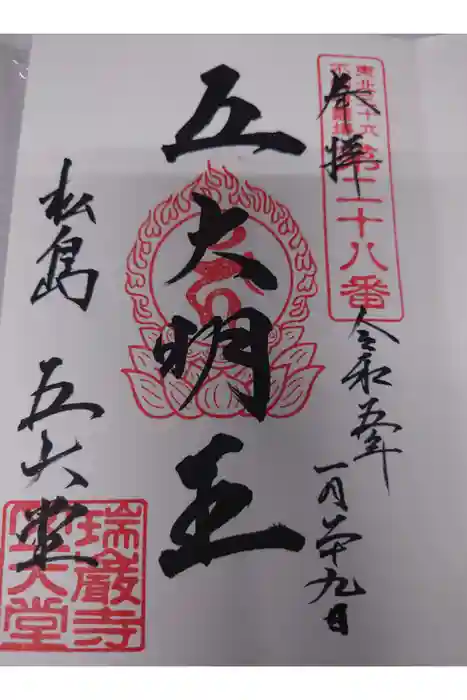 奉拝
東北三十六
不動尊霊場
第二十八番
令和五年
一月廿九日
五大明王
松島 五大堂
瑞巌寺
五大堂